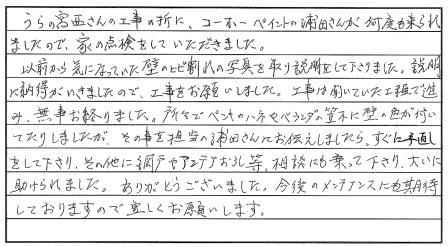 うらの宮西さんの工事の折に、コーホーペイントの浦田さんが何度も来られ
ましたので、家の点検をしていただきました。
以前から気になっていた壁のヒビ割れの写真を取り説明をして下さりました。説明
に納得がいきましたので、工事をお願いしました。工事は聞いていた工程で進
み、無事お終りました。所々でペンキのハネやベランダの笠木に壁の色が付い
てたりしましたが、その事を担当の浦田さんにお伝えしましたら、すぐに手直し
をして下さり、その他に網戸やアンテナおろし等、相談にも乗って下さり、大いに
助けられました。ありがとうございました。今後のメンテナンスにも期待
しておりますので宜しくお願いします。